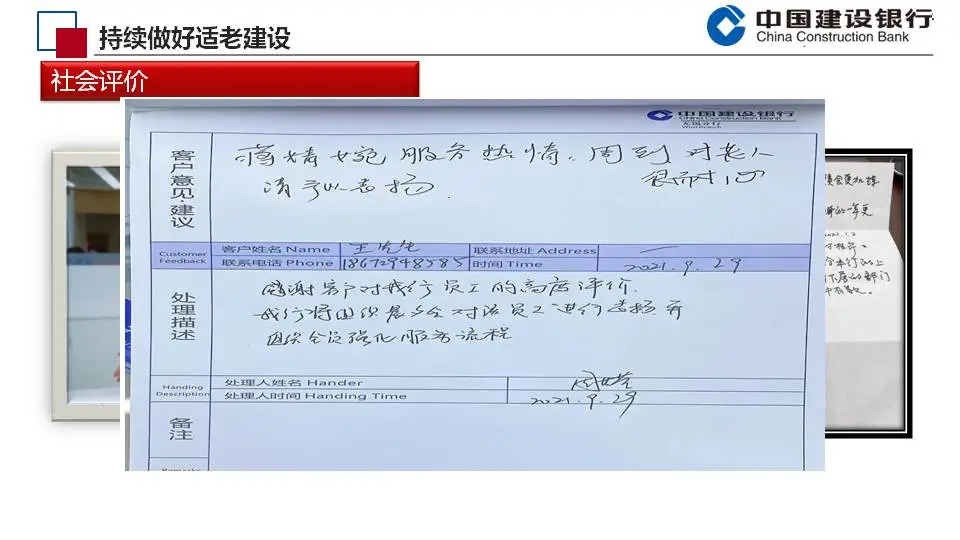 持续做好适老建设
中国建设银行
China Construction Bank
社会评价
中国建设银行
China Construction Bank
无锡分行
Wuxi Branch
客户意见·建议
蒋婧婉服务热情、周到 对老人
很耐心
请予以表扬.
Customer
Feedback
客户姓名 Name 王先生 联系地址 Address 一
联系电话 Phone 18672948585 时间 Time 2021.9.29
处理描述
感谢客户对我行员工的高度评价.
我行将
对该员工进行表扬并
全员强化服务流程
Handing
Description
处理人姓名 Hander
处理人时间 Handing Time 2021.9.29
备注
Remarks
2021.1.2